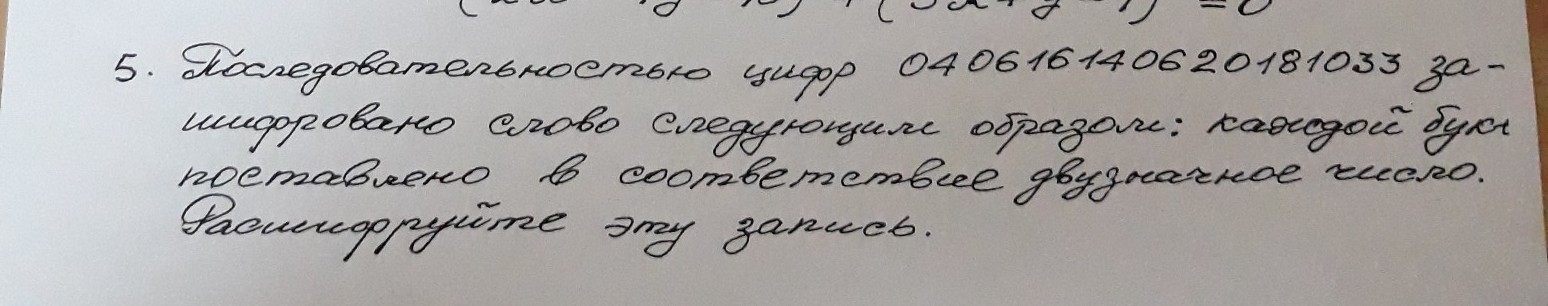 5. Последовательностью цифр 040616140620181033 за-
шифровано слово следующим образом: каждой букв
поставлено в соответствие двузначное число.
Расшифруйте эту запись.